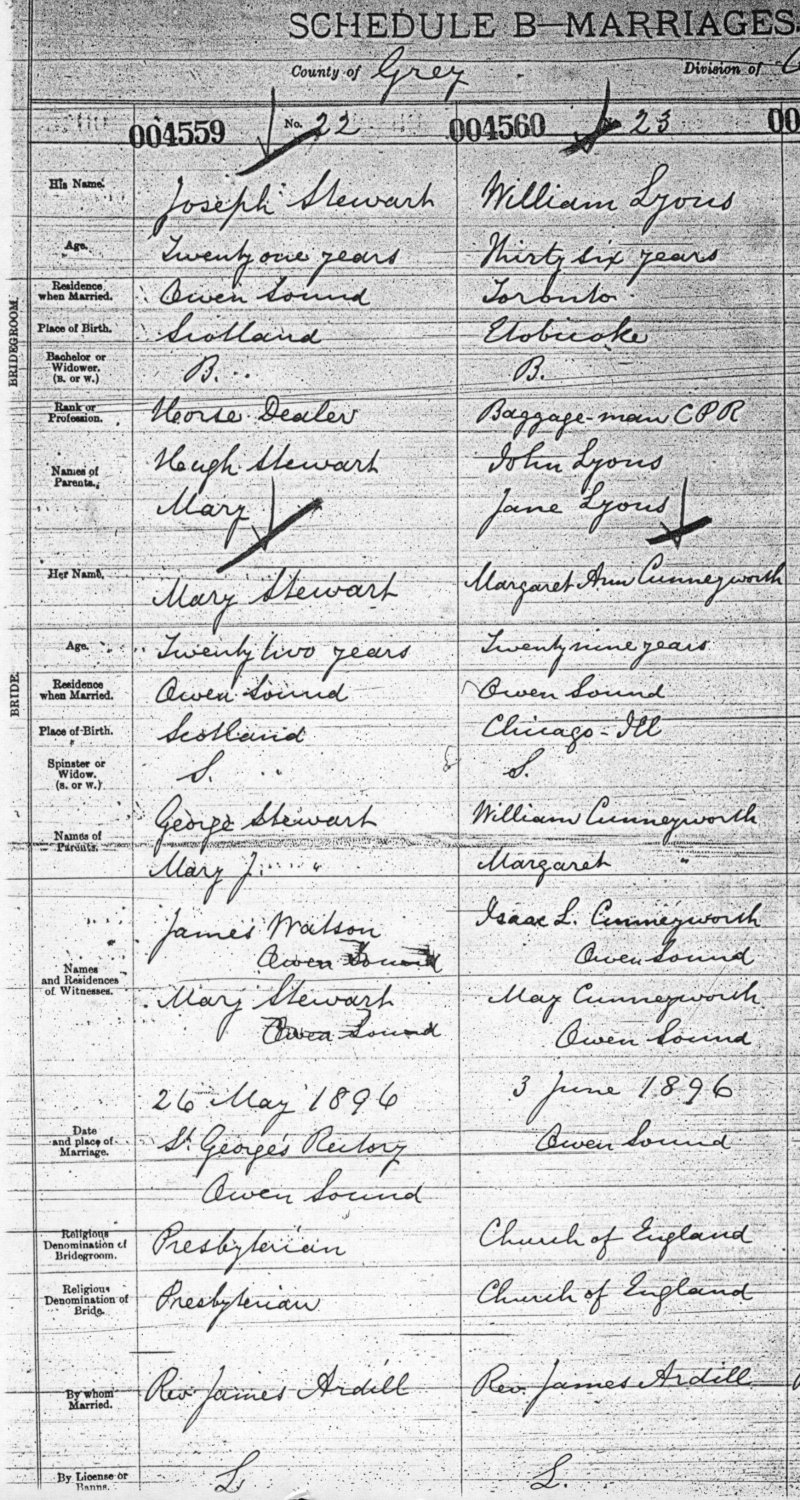 SCHEDULE B—MARRIAGES
County of Grey
Division of
004559 No. 22
004560 23
00
BRIDEGROOM.
His Name. Joseph Stewart William Lyons
Age. Twenty one years Thirty six years
Residence when Married. Owen Sound Toronto
Place of Birth. Scotland Etobicoke
Bachelor or Widower. (B. or W.) B. B.
Rank or Profession. Horse Dealer Baggage-man CPR
Names of Parents. Hugh Stewart John Lyons
Mary Jane Lyons
BRIDE.
Her Name. Mary Stewart Margaret Ann Cunneyworth
Age. Twenty two years Twenty nine years
Residence when Married. Owen Sound Owen Sound
Place of Birth. Scotland Chicago - Ill
Spinster or Widow. (S. or W.) S. S.
Names of Parents. George Stewart William Cunneyworth
Mary J. " Margaret "
Names and Residences of Witnesses. James Watson Isaac L. Cunneyworth
Owen Sound Owen Sound
Mary Stewart May Cunneyworth
Owen Sound Owen Sound
Date and place of Marriage. 26 May 1896 3 June 1896
St. George's Rectory Owen Sound
Owen Sound
Religious Denomination of Bridegroom. Presbyterian Church of England
Religious Denomination of Bride. Presbyterian Church of England
By whom Married. Rev James Ardill Rev. James Ardill
By License or Banns. L L.